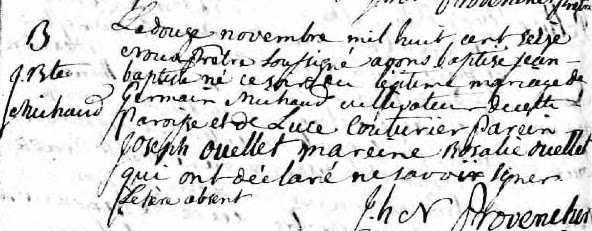 B
J. Bte
Michaud
Le douze novembre mil huit cent seize
nous prêtre soussigné avons baptisé jean
baptiste né ce jour du légitime mariage de
Germain Michaud cultivateur de cette
Paroisse et de Luce Couturier Parein
Joseph Ouellet mareine Rosalie Ouellet
qui ont déclaré ne savoir signer
le père absent
J. h N Provencher